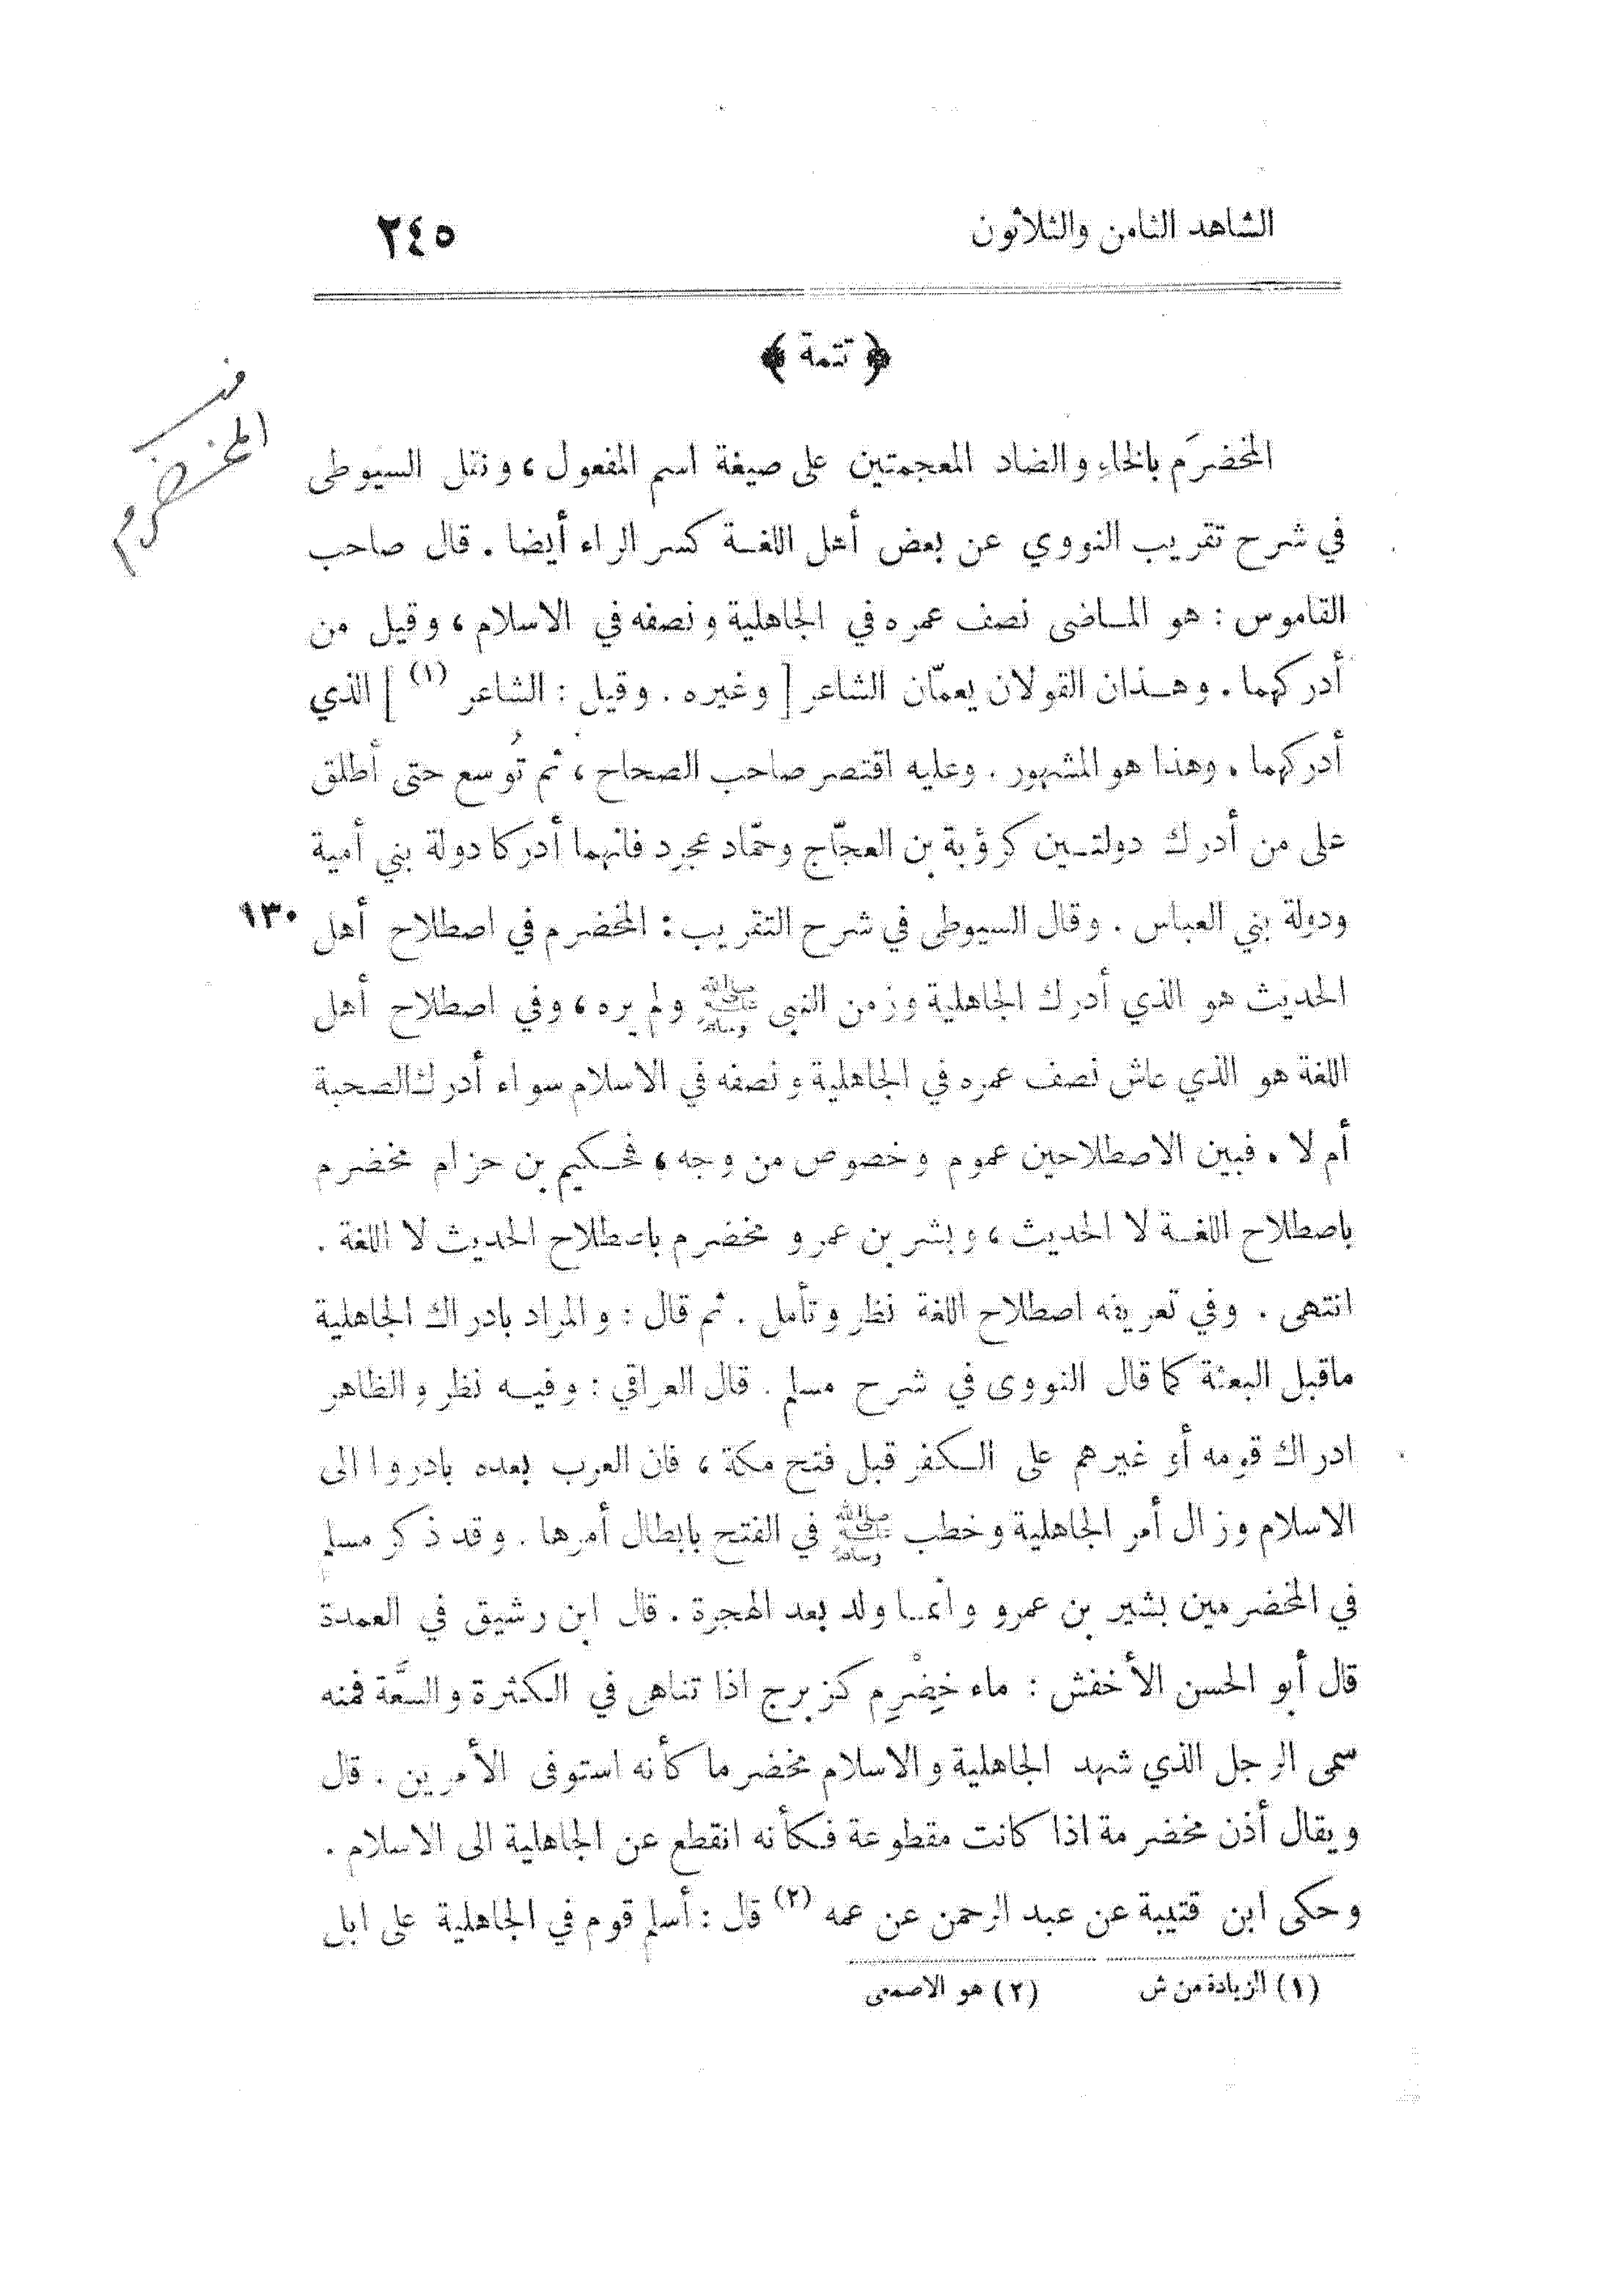 الشاهد الثامن والثلاثون ٢٤٥
﴿ تتمة ﴾
المخضرَم بالخاء والضاد المعجمتين على صيغة اسم المفعول ، ونقل السيوطى
في شرح تقريب النووي عن بعض أهل اللغة كسر الراء أيضا . قال صاحب
القاموس : هو الماضى نصف عمره في الجاهلية ونصفه في الاسلام ، وقيل من
أدركهما . وهذان القولان يعمّان الشاعر [ وغيره . وقيل : الشاعر (١) ] الذي
أدركهما . وهذا هو المشهور . وعليه اقتصر صاحب الصحاح ، ثم تُوُسع حتى أطلق
على من أدرك دولتين كرؤبة بن العجّاج وحمّاد عجرد فانهما أدركا دولة بني أمية
ودولة بني العباس . وقال السيوطى في شرح التقريب : المخضرم في اصطلاح أهل ١٣٠
الحديث هو الذي أدرك الجاهلية وزمن النبي ﷺ ولم يره ، وفي اصطلاح أهل
اللغة هو الذي عاش نصف عمره في الجاهلية ونصفه في الاسلام سواء أدرك الصحبة
أم لا . فبين الاصطلاحين عموم وخصوص من وجه ، فحكيم بن حزام مخضرم
باصطلاح اللغة لا الحديث ، وبشر بن عمرو مخضرم باصطلاح الحديث لا اللغة .
انتهى . وفي تعريفه اصطلاح اللغة نظر وتأمل . ثم قال : والمراد بادراك الجاهلية
ماقبل البعثة كما قال النووى في شرح مسلم . قال العراقي : وفيه نظر والظاهر
ادراك قومه أو غيرهم على الكفر قبل فتح مكة ، فان العرب بعده بادروا الى
الاسلام وزال أمر الجاهلية وخطب ﷺ في الفتح بابطال أمرها . وقد ذكر مسلم
في المخضرمين بشير بن عمرو وانما ولد بعد الهجرة . قال ابن رشيق في العمدة
قال أبو الحسن الأخفش : ماء خِضْرِم كزبرج اذا تناهى في الكثرة والسَّعة فمنه
سمى الرجل الذي شهد الجاهلية والاسلام مخضرما كأنه استوفى الأمرين . قال
ويقال أذن مخضرمة اذا كانت مقطوعة فكأنه انقطع عن الجاهلية الى الاسلام .
وحكى ابن قتيبة عن عبد الرحمن عن عمه (٢) قال : أسلم قوم في الجاهلية على ابل
(١) الزيادة من ش (٢) هو الاصمعى
المخضرم